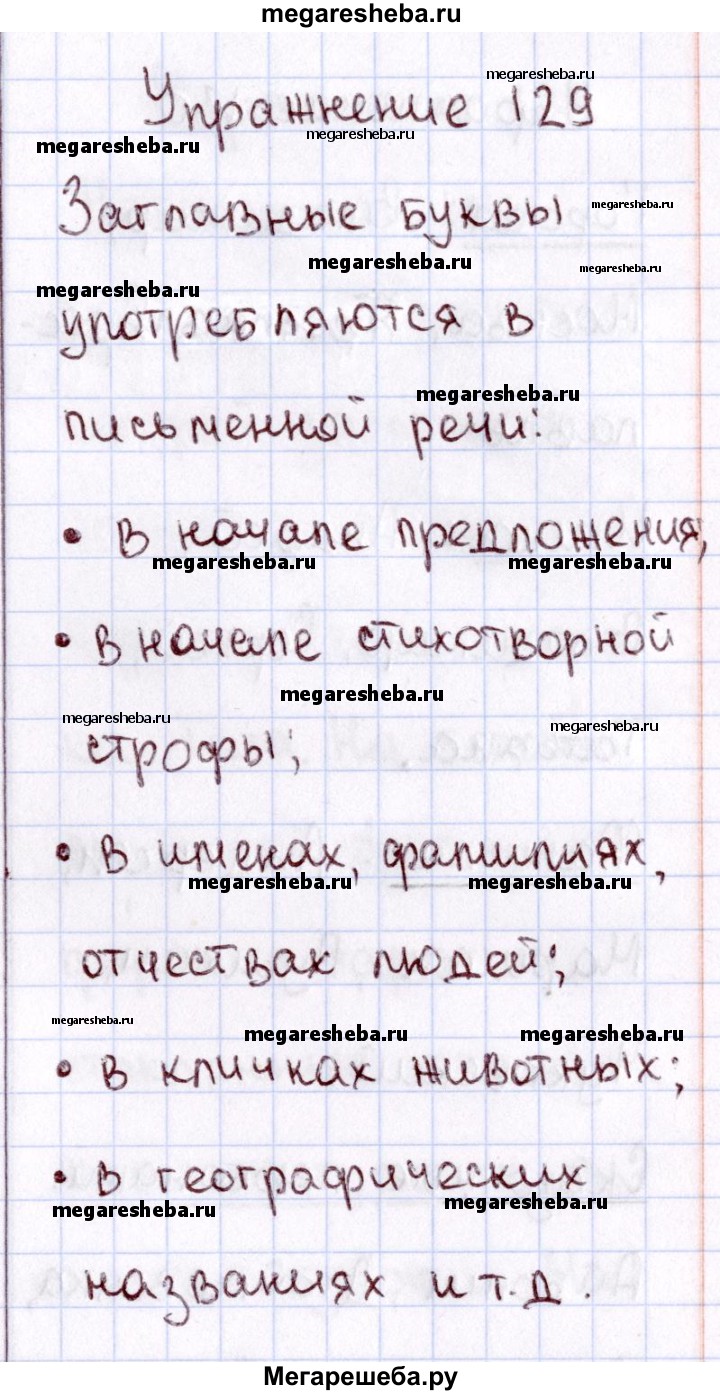 megaresheba.ru
megaresheba.ru
Упражнение 129
megaresheba.ru
megaresheba.ru
Заглавные буквы
megaresheba.ru
megaresheba.ru
megaresheba.ru
megaresheba.ru
употребляются в
megaresheba.ru
письменной речи:
• в начале предложения,
megaresheba.ru
megaresheba.ru
• в начале стихотворной
megaresheba.ru
megaresheba.ru
megaresheba.ru
строфы;
• в именах, фамилиях,
megaresheba.ru
megaresheba.ru
отчествах людей;
megaresheba.ru
megaresheba.ru
megaresheba.ru
• в кличках животных;
• в географических
megaresheba.ru
megaresheba.ru
названиях и т.д.
Мегарешеба.ру